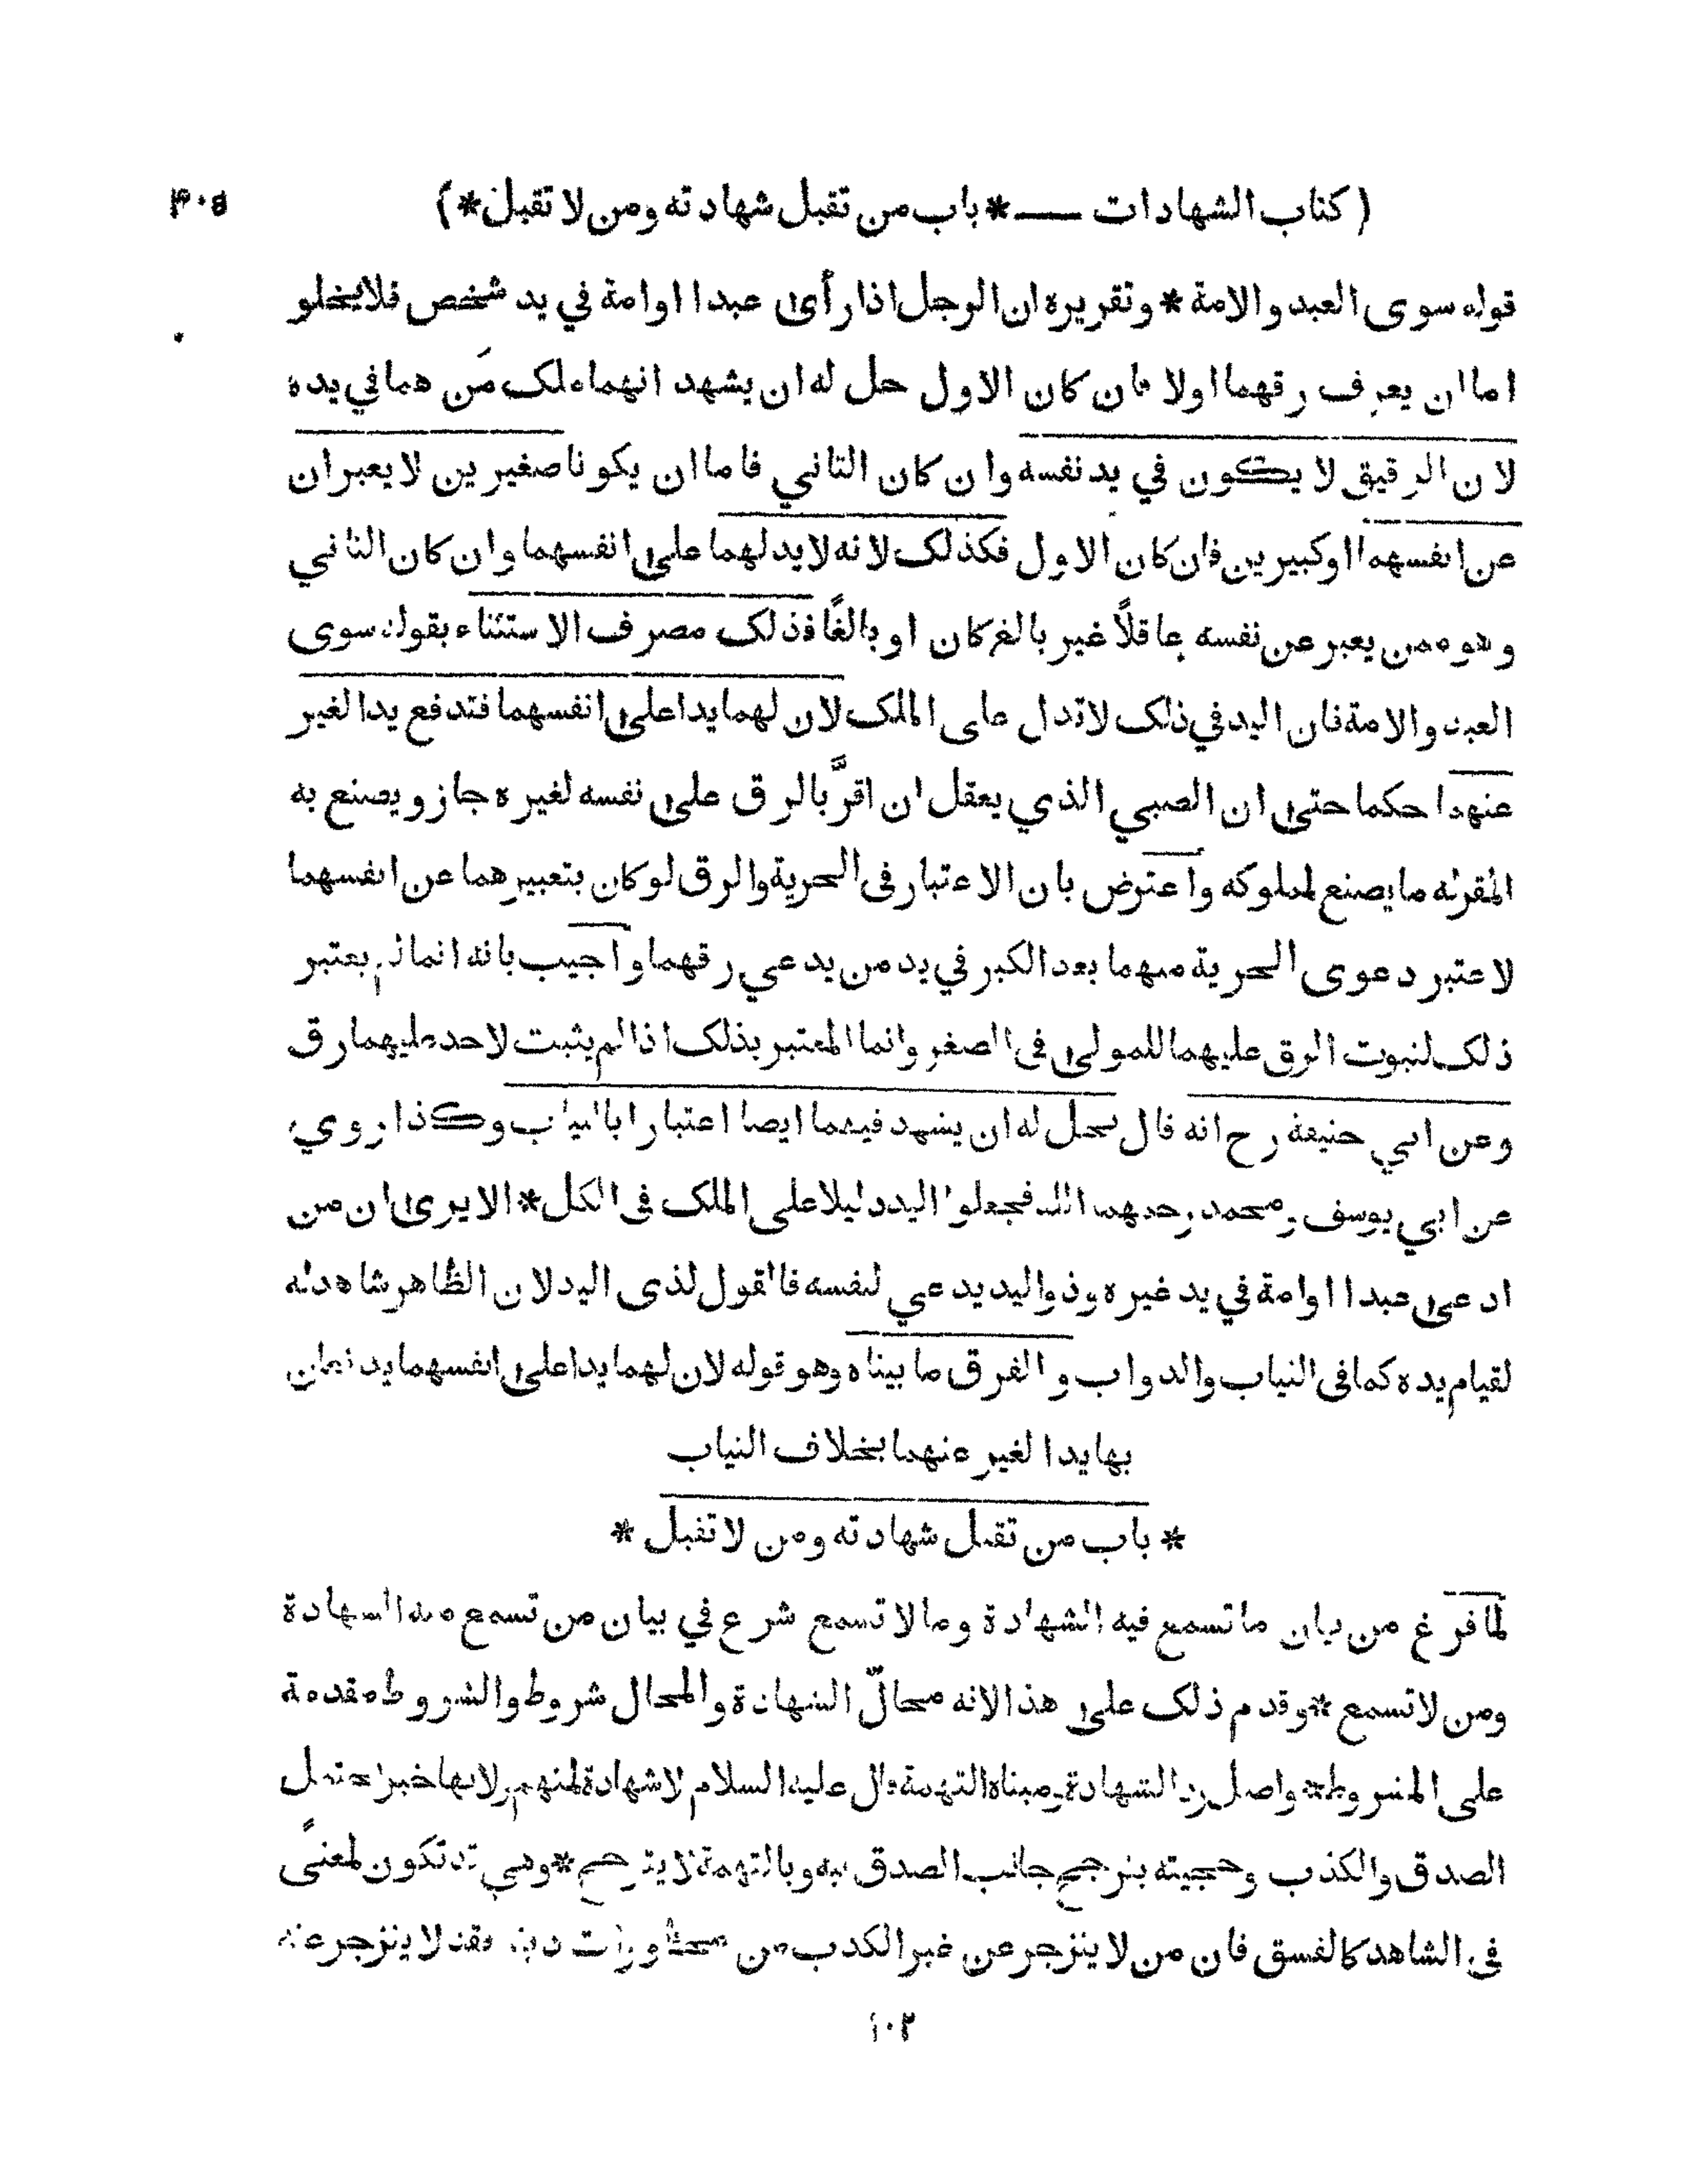 ( كتاب الشهادات —— * باب من تقبل شهادته ومن لا تقبل * ) ۴۰۵
قوله سوى العبد والامة * وتقريره ان الرجل اذا رأى عبدا او امة في يد شخص فلا يخلو
اما ان يعرف رقهما اولا فان كان الاول حل له ان يشهد انهما ملك مَن هما في يده
لان الرقيق لا يكون في يد نفسه وان كان الثاني فاما ان يكونا صغيرين لا يعبران
عن انفسهما او كبيرين فان كان الاول فكذلك لانه لا يد لهما على انفسهما وان كان الثاني
وهو ممن يعبر عن نفسه عاقلاً غير بالغ كان او بالغًا فذلك مصرف الاستثناء بقوله سوى
العبد والامة فان اليد في ذلك لا تدل على الملك لان لهما يدا على انفسهما فتدفع يد الغير
عنهما حكما حتى ان الصبي الذي يعقل ان اقرَّ بالرق على نفسه لغيره جاز ويصنع به
المقر له ما يصنع لمملوكه واعترض بان الاعتبار في الحرية والرق لو كان بتعبيرهما عن انفسهما
لاعتبر دعوى الحرية منهما بعد الكبر في يد من يدعي رقهما واجيب بانه انما لم يعتبر
ذلك لثبوت الرق عليهما للمولى في الصغر وانما المعتبر بذلك اذا لم يثبت لاحد عليهما رق
وعن ابي حنيفة رح انه قال يحل له ان يشهد فيهما ايضا اعتبارا بالثياب وكذا روي
عن ابي يوسف ومحمد رحمهما الله فجعلوا اليد دليلا على الملك في الكل * الا يرى ان من
ادعى عبدا او امة في يد غيره وذو اليد يدعي لنفسه فالقول لذى اليد لان الظاهر شاهد له
لقيام يده كما في الثياب والدواب و الفرق ما بيناه وهو قوله لان لهما يدا على انفسهما يدفعان
بها يد الغير عنهما بخلاف الثياب
* باب من تقبل شهادته ومن لا تقبل *
لما فرغ من بيان ما تسمع فيه الشهادة وما لا تسمع شرع في بيان من تسمع منه الشهادة
ومن لا تسمع * وقدم ذلك على هذا لانه محالّ الشهادة والمحال شروط والشروط مقدمة
على المشروط * واصل رد الشهادة ومبناه التهمة قال عليه السلام لا شهادة لمتهم ولانها خبر احتمل
الصدق والكذب وحجيته بترجح جانب الصدق فيه وبالتهمة لا يترجح * وهي قد تكون لمعنًى
في الشاهد كالفسق فان من لا ينزجر عن غير الكذب من محظورات دينه فقد لا ينزجر عنه
۱۰۲